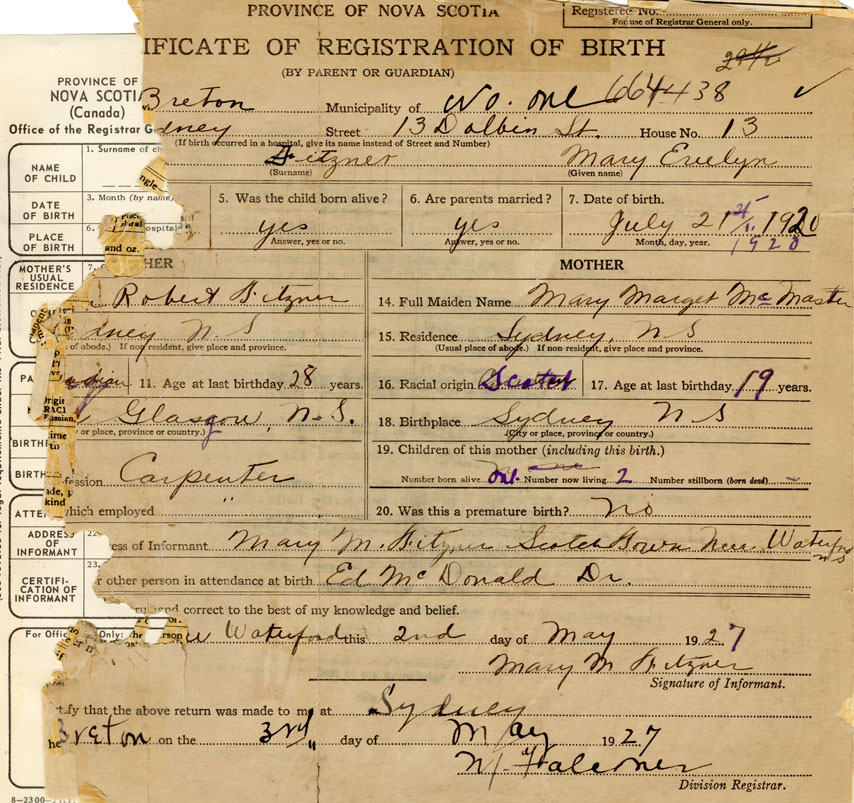 PROVINCE OF NOVA SCOTIA
Registered No.
For use of Registrar General only.
IFICATE OF REGISTRATION OF BIRTH
(BY PARENT OR GUARDIAN)
PROVINCE OF
NOVA SCOTIA
(Canada)
Office of the Registrar G
Breton Municipality of No. one 664438
dney Street 13 Dolbin St. House No. 13
(If birth occurred in a hospital, give its name instead of Street and Number)
NAME OF CHILD
1. Surname of ch
Fitzner Mary Evelyn
(Surname) (Given name)
DATE OF BIRTH
3. Month (by name)
5. Was the child born alive? 6. Are parents married? 7. Date of birth.
yes yes July 21 1920
Answer, yes or no. Answer, yes or no. Month, day, year.
1920
PLACE OF BIRTH
6.
and oz.
MOTHER'S USUAL RESIDENCE
7.
HER MOTHER
Robert Fitzner 14. Full Maiden Name Mary Marget McMaster
dney N S 15. Residence Sydney, N S
of abode.) If non resident, give place and province. (Usual place of abode.) If non-resident, give place and province.
11. Age at last birthday 28 years. 16. Racial origin Scotch 17. Age at last birthday 19 years.
Glasgow, N.S. 18. Birthplace Sydney N S
or place, province or country.) (City or place, province or country.)
BIRTH
19. Children of this mother (including this birth.)
fession Carpenter Number born alive one Number now living 2 Number stillborn (born dead)
BIRTH
which employed " 20. Was this a premature birth? no
ADDRESS OF INFORMANT
22.
ess of Informant Mary M. Fitzner Scotch Town New Waterford N S
CERTIFI-CATION OF INFORMANT
23.
r other person in attendance at birth Ed McDonald Dr.
and correct to the best of my knowledge and belief.
For Offic Only:
Waterford this 2nd day of May 1927
Mary M Fitzner
Signature of Informant.
tify that the above return was made to me at Sydney
Breton on the 3rd day of May 1927
Falconer
Division Registrar.
8-2300